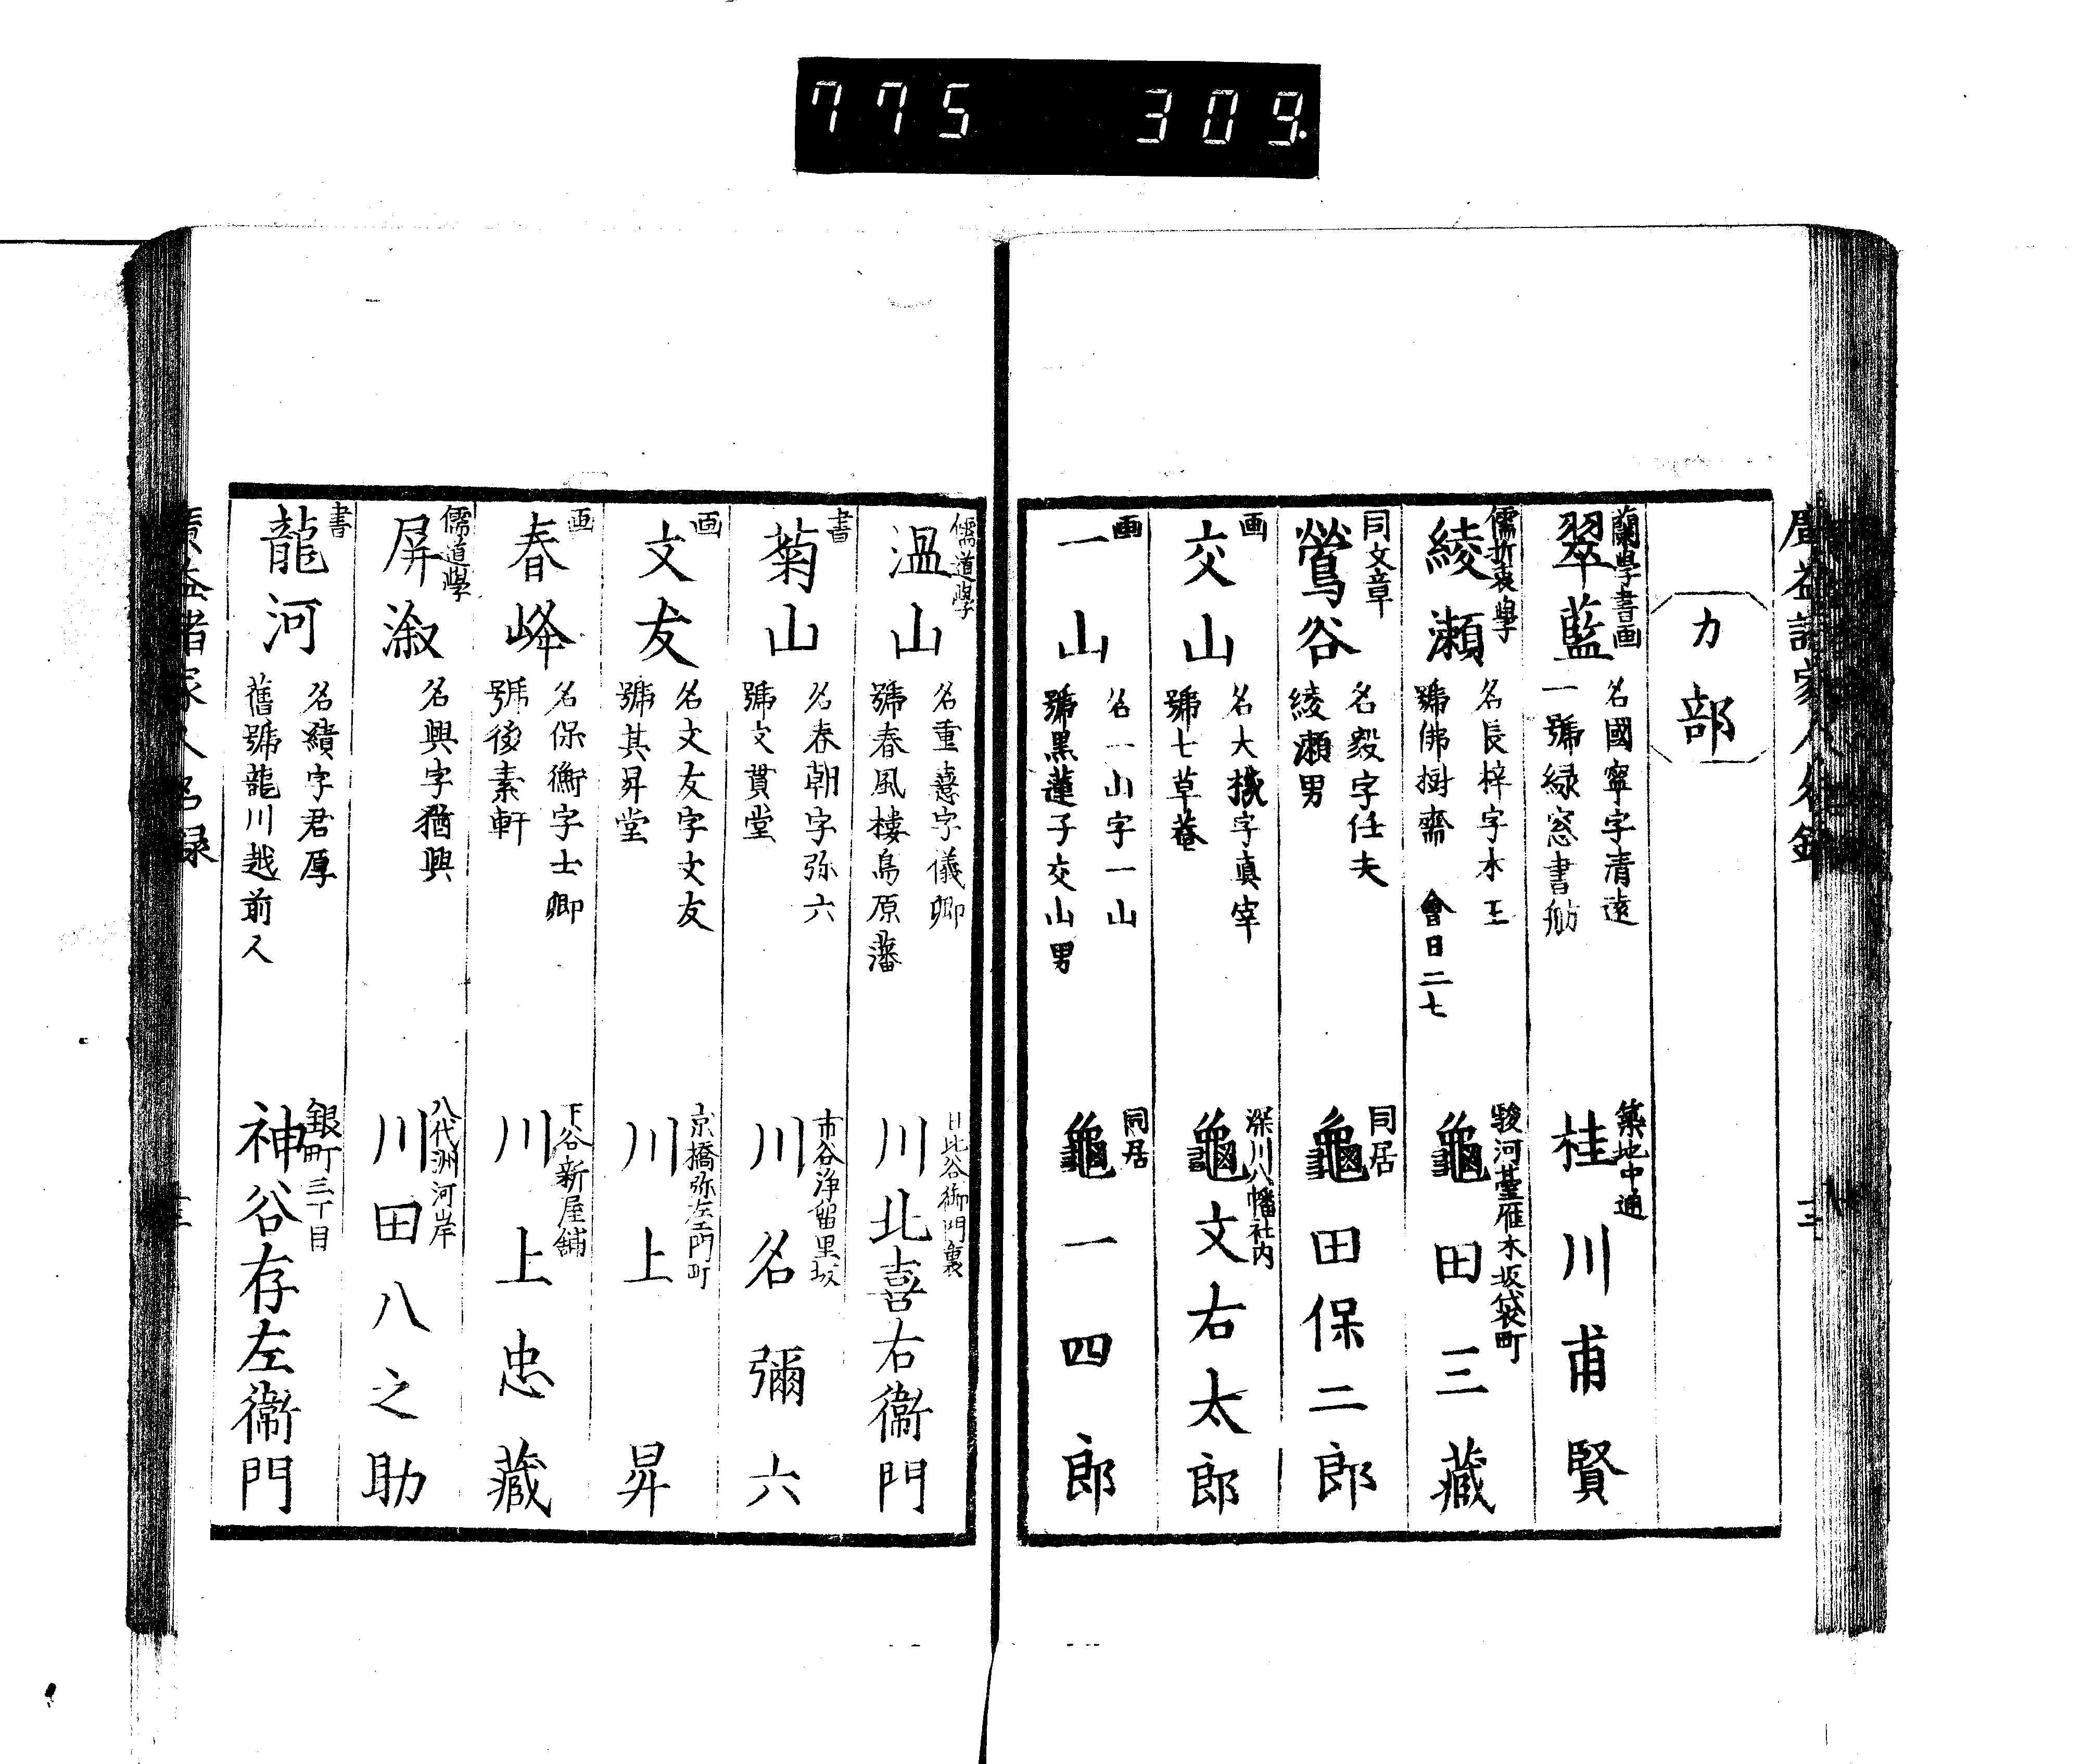 775 309.
廣益諸家人名録
カ部
蘭學書画
翠藍
名國寧字清遠
一號緑窓書舫
築地中通
桂川甫賢
儒折衷學
綾瀬
名長梓字木王
號佛樹齋 會日二七
駿河臺雁木坂袋町
龜田三藏
同文章
鶯谷
名毅字任夫
綾瀬男
同居
龜田保二郎
画
交山
名大機字真宰
號七草菴
深川八幡社内
龜文右太郎
画
一山
名一山字一山
號黒蓮子交山男
同居
龜一四郎
儒道學
温山
名重憙字儀卿
號春風樓島原藩
日比谷御門裏
川北喜右衞門
書
菊山
名春朝字弥六
號文貫堂
市谷浄留里坂
川名彌六
画
文友
名文友字文友
號其昇堂
京橋弥左エ門町
川上昇
画
春峰
名保衡字士卿
號後素軒
下谷新屋舗
川上忠藏
儒道學
屏溆
名興字猶興
八代洲河岸
川田八之助
書
龍河
名績字君厚
舊號龍川越前人
銀町三丁目
神谷存左衞門
廣益諸家人名録